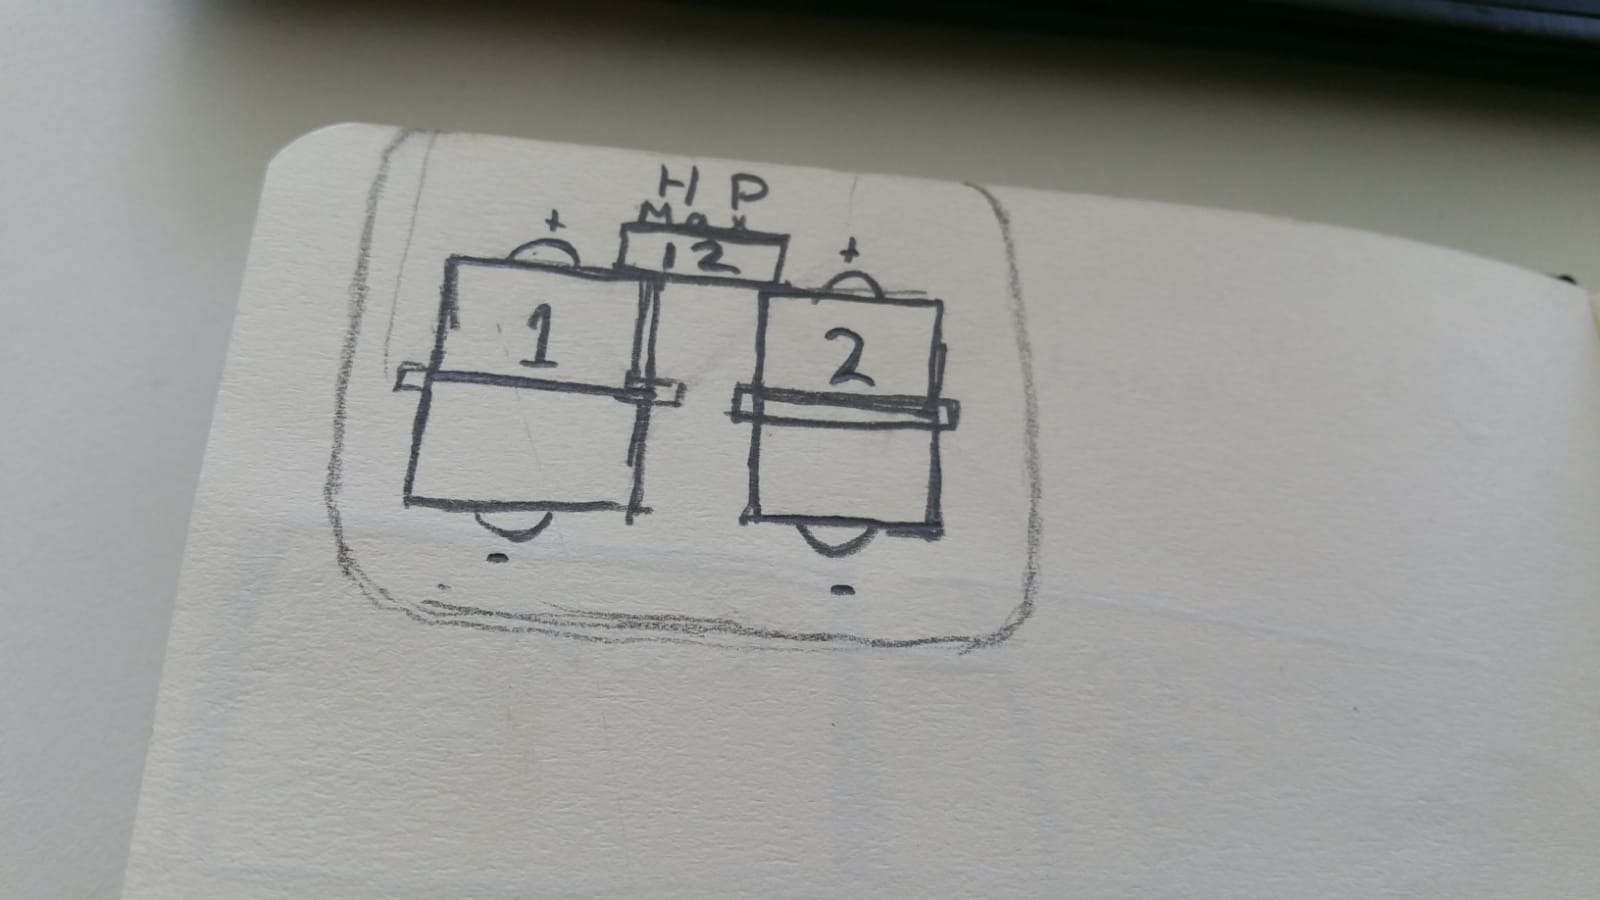 H P
Max
+ 12 +
1 2
- -